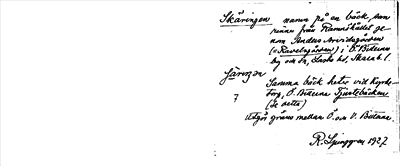 Skäringen namn på en bäck, som
rinner från Ramnskället ge-
nom Anders Arvidsgården
(=Ravelsgården) i Ö. Bitterna
by om sn, Laske hd, Skarab. l.
Järngen
Samma bäck heter vid Kyrke-
torp, Ö. Bitterna Tjustebäcken
(se detta)
7
Utgör gräns mellan Ö. om V. Bitterna.
R. Ljunggren 1927